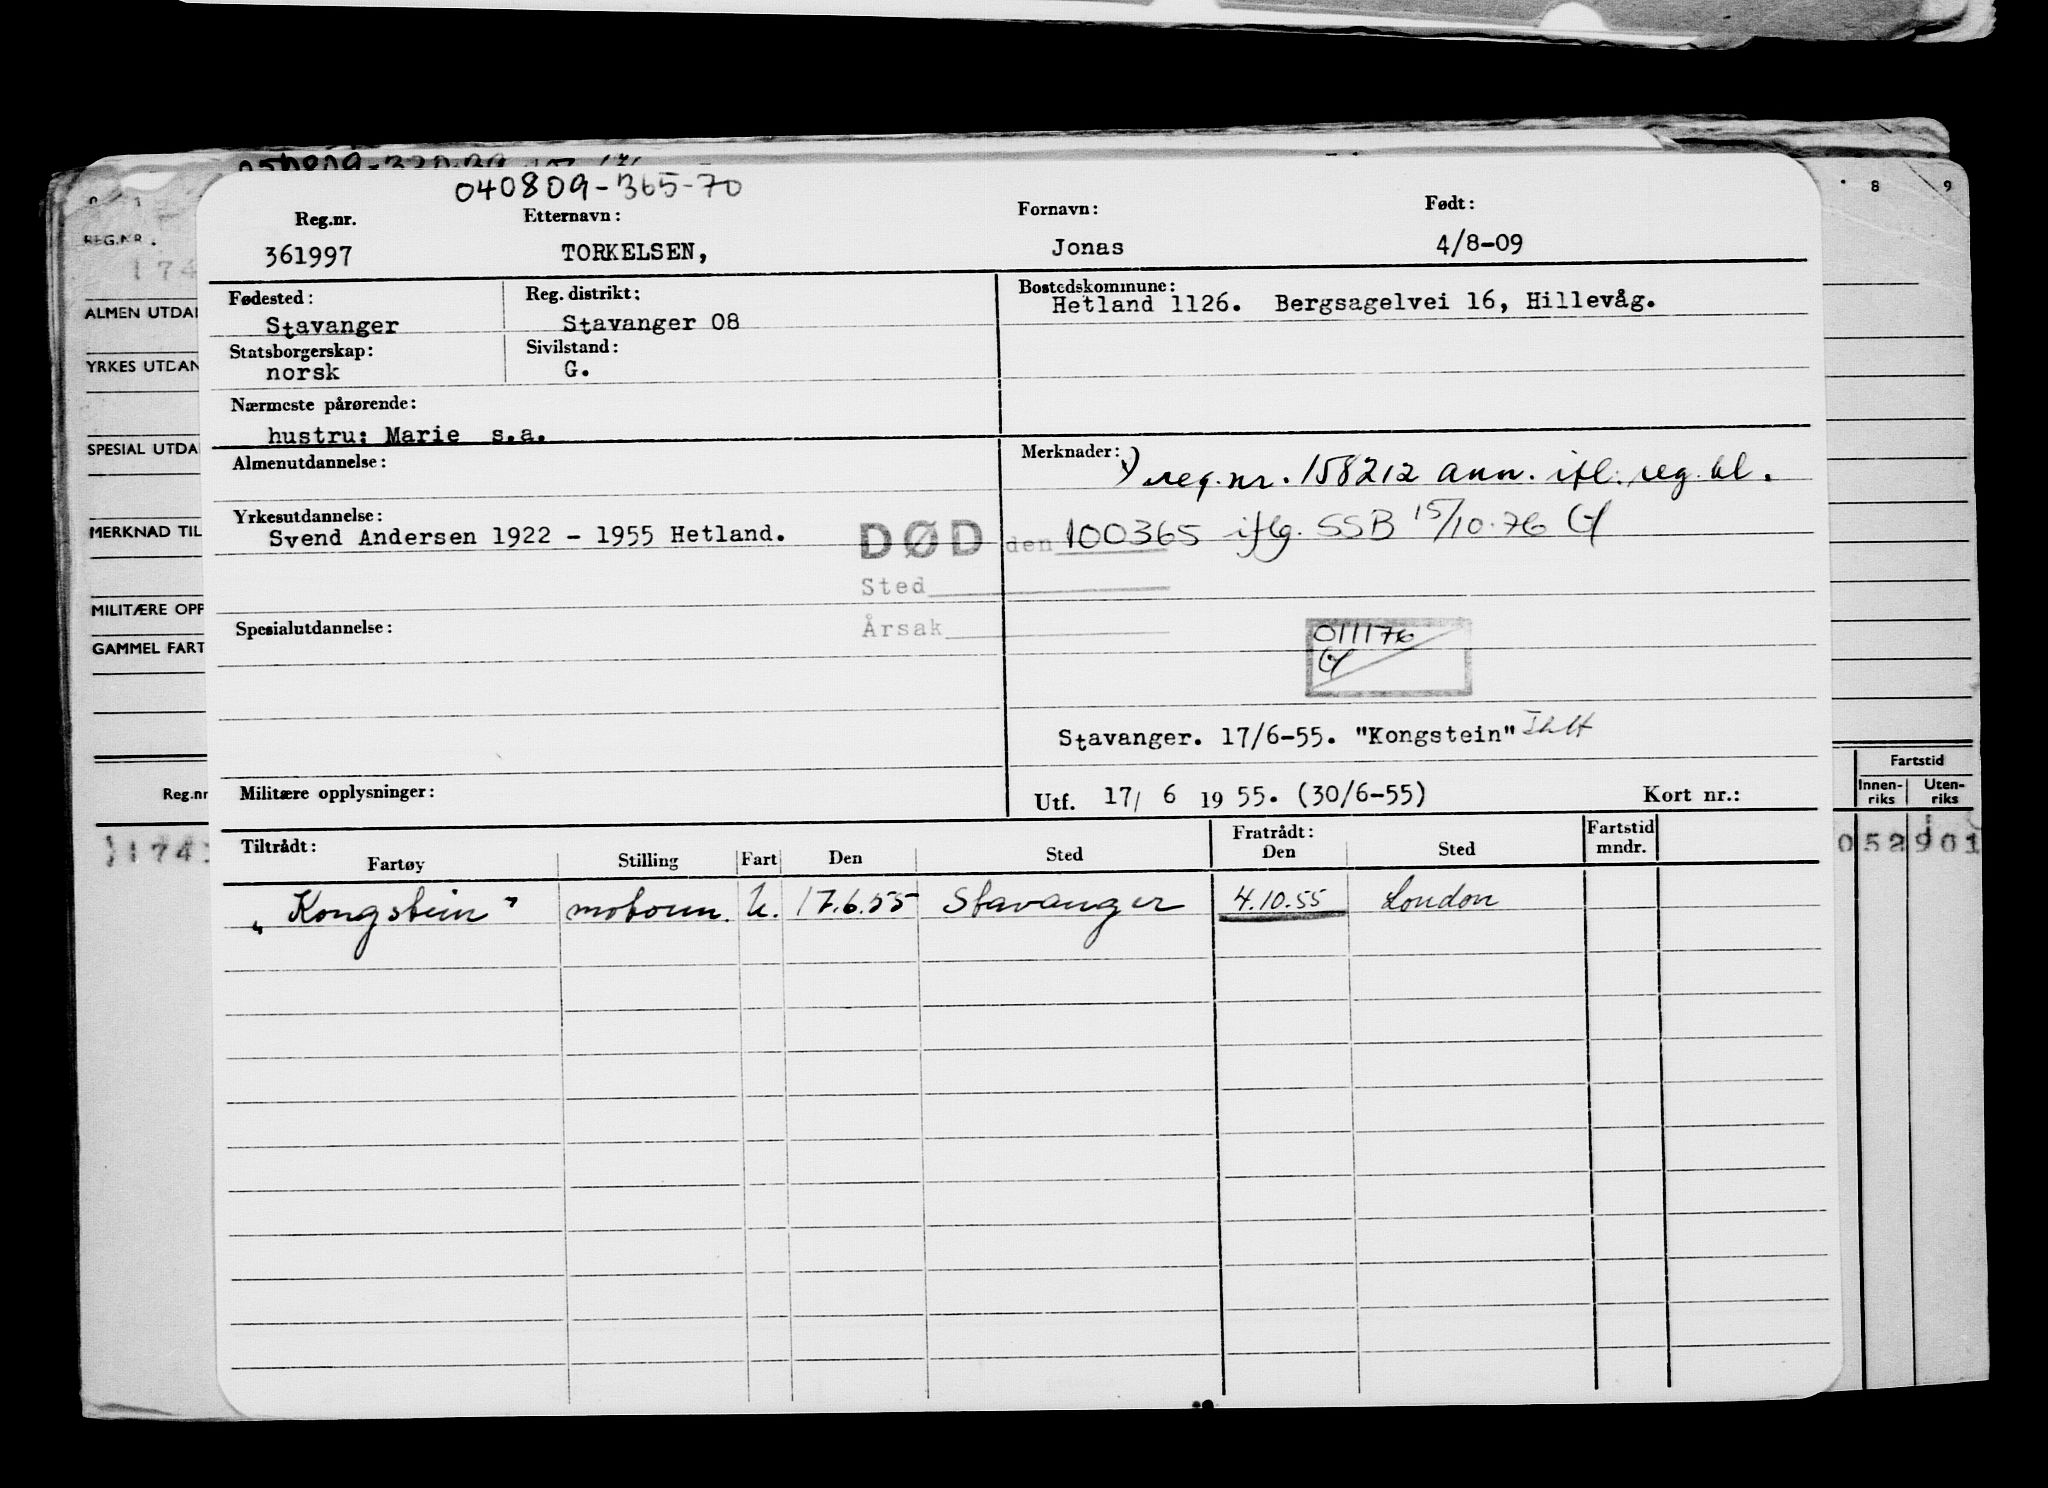 040809-365-70
Reg.nr. Etternavn: Fornavn: Født:
361997 TORKELSEN, Jonas 4/8-09
Fødested: Reg. distrikt: Bostedskommune:
Stavanger Stavanger 08 Hetland 1126. Bergsagelvei 16, Hillevåg.
Statsborgerskap: Sivilstand:
norsk G.
Nærmeste pårørende:
hustru: Marie s.a.
Almenutdannelse: Merknader:
) reg.nr. 158212 ann. ifl. reg.bl.
Yrkesutdannelse:
Svend Andersen 1922 - 1955 Hetland.
DØD den 100365 iflg. SSB 15/10-76
Sted
Årsak
Spesialutdannelse:
011176
Stavanger. 17/6-55. "Kongstein"
Militære opplysninger: Utf. 17/ 6 19 55. (30/6-55) Kort nr.:
Tiltrådt: Fratrådt: Fartstid
Fartøy Stilling Fart Den Sted Den Sted mndr.
"Kongstein" motorm. U. 17.6.55 Stavanger 4.10.55 London
REG.NR.
174
ALMEN UTDA
YRKES UTDAN
SPESIAL UTDA
MERKNAD TIL
MILITÆRE OPP
GAMMEL FART
Reg.nr
174
8 9
Fartstid
Innen-riks Uten-riks
052901